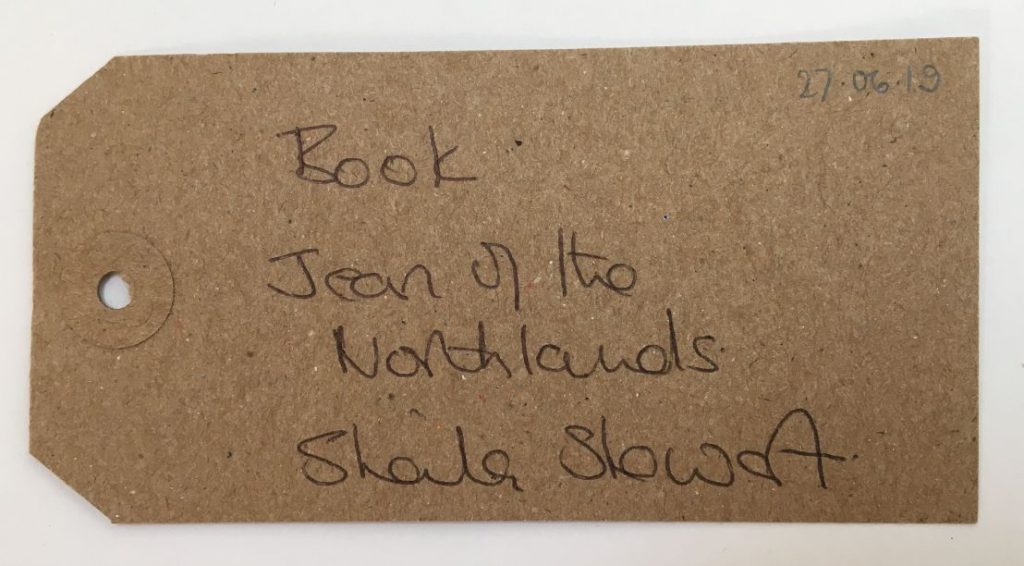 27.06.19
Book
Jean of the
Northlands
Sheila Stewart.